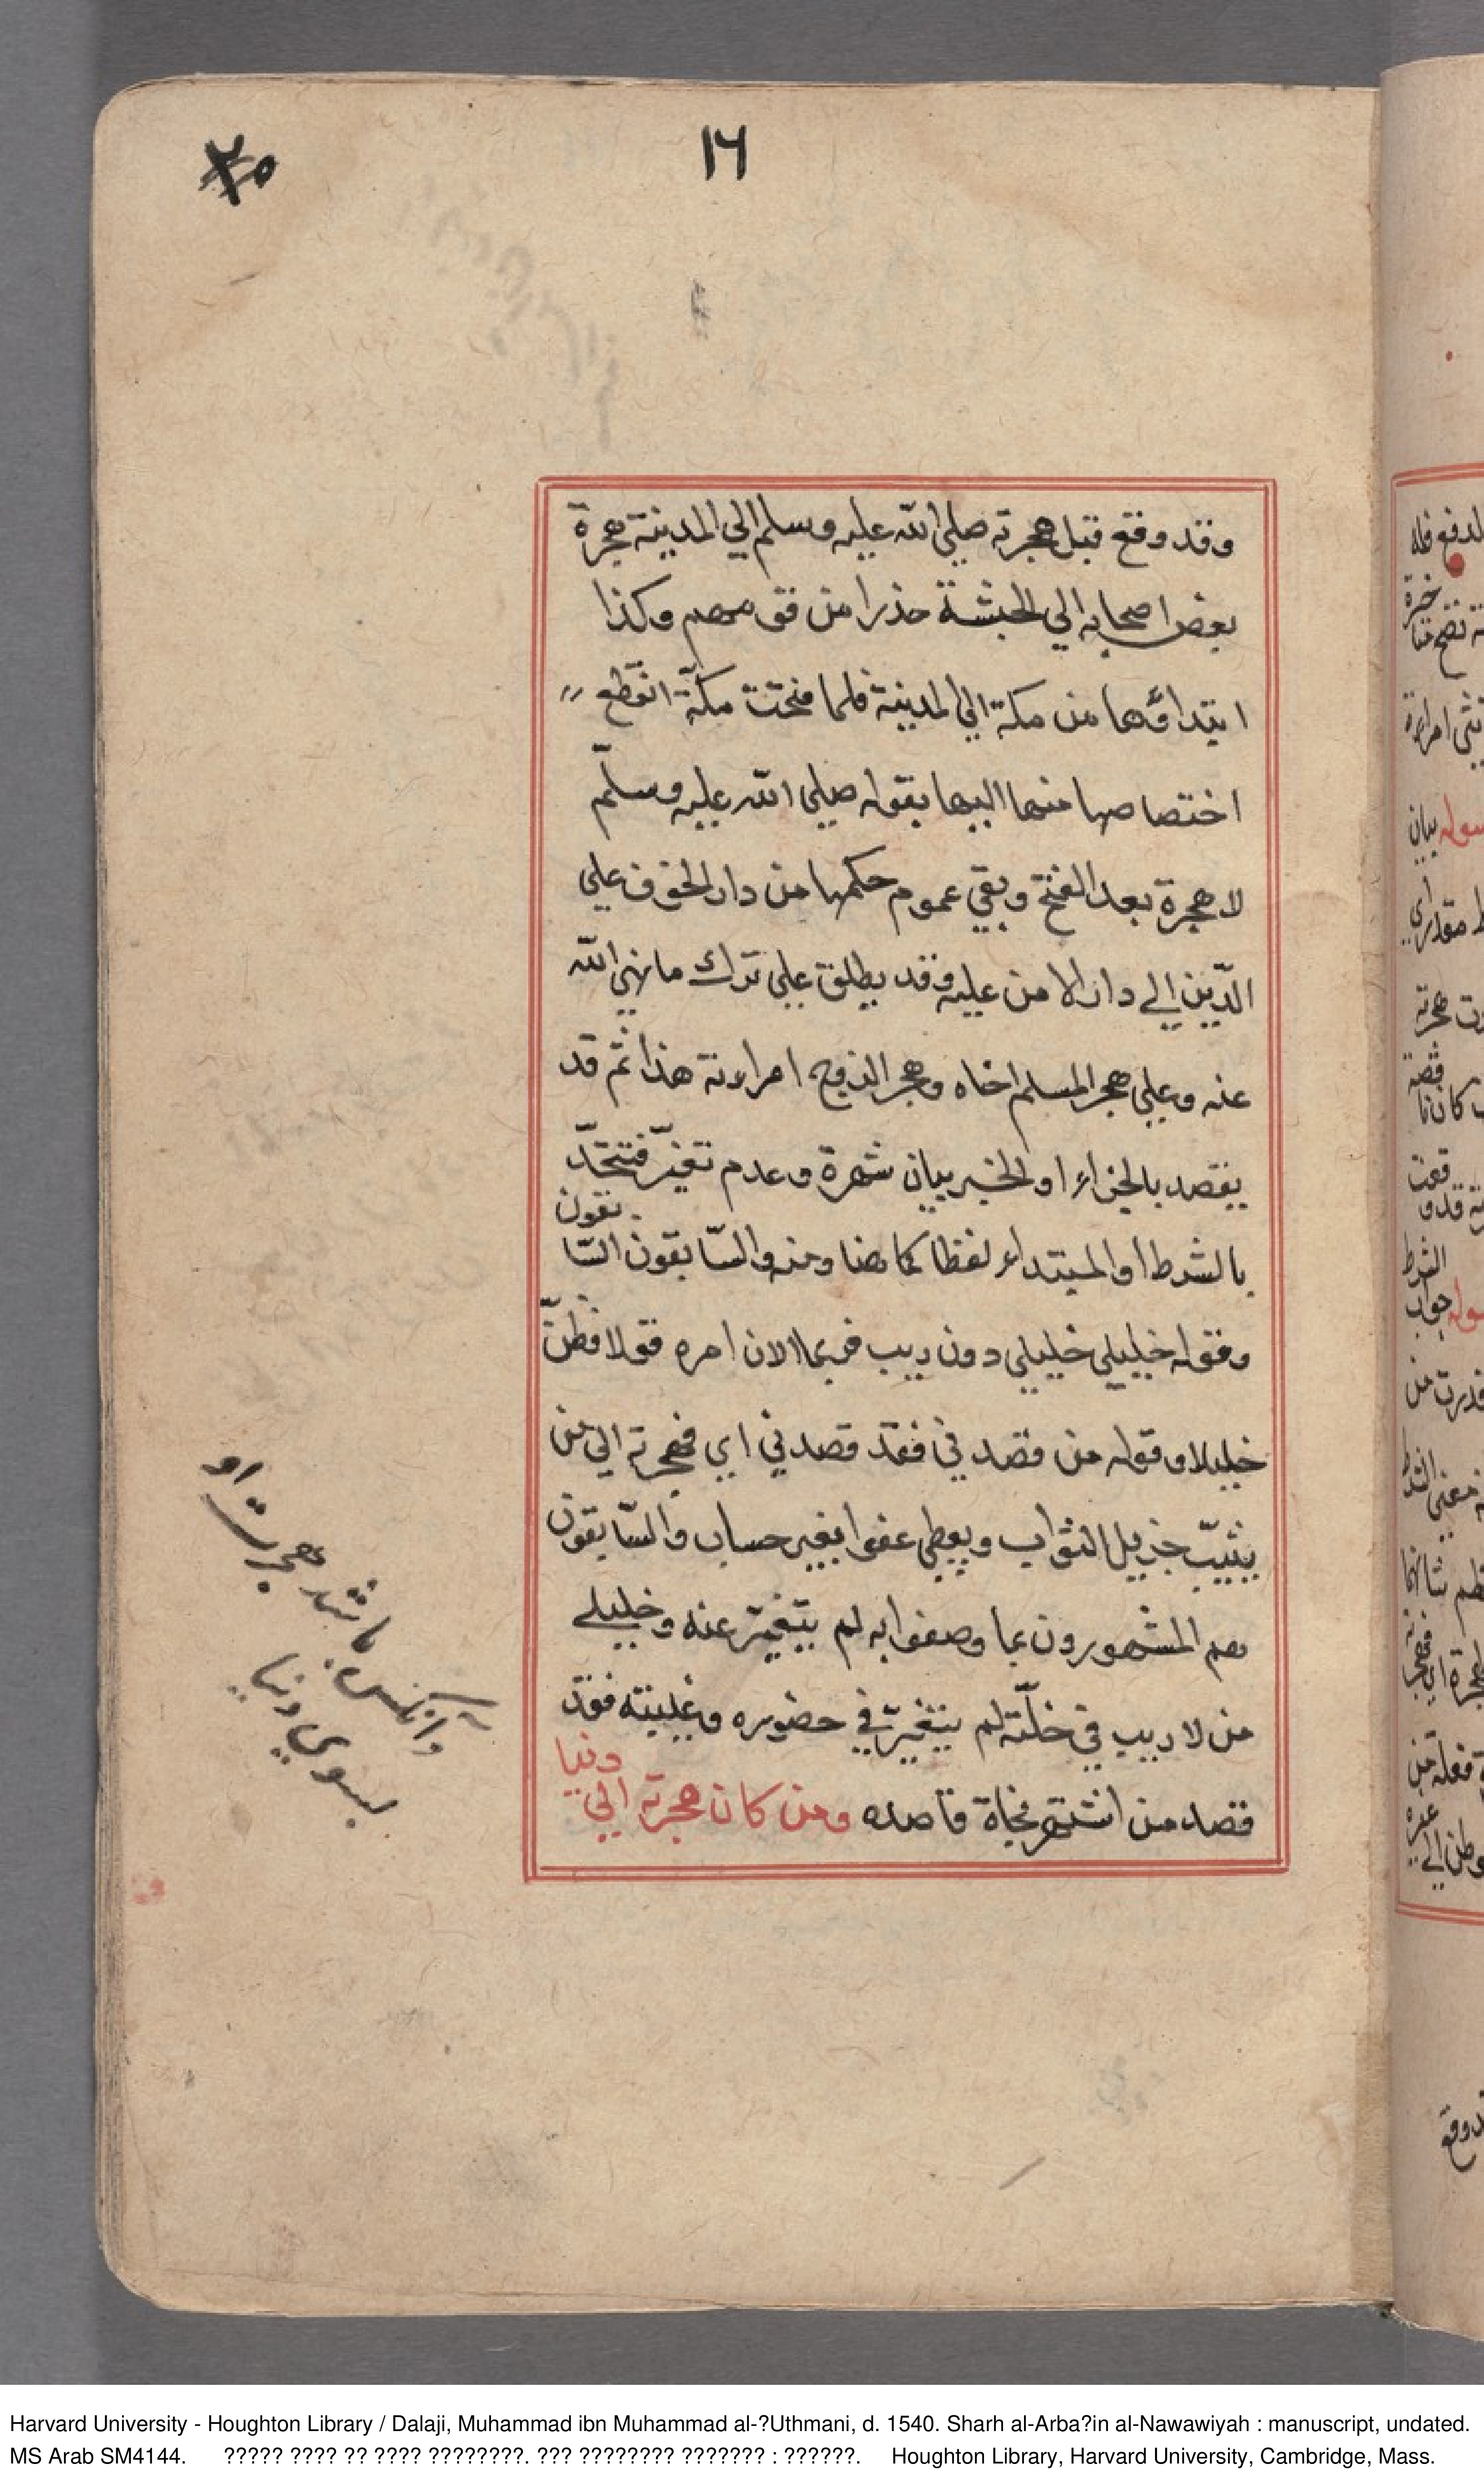 ١٦
٢٥
وقد وقع قبل هجرته صلي الله عليه وسلم الي المدينة هجرة
بعض اصحابه الي الحبشة حذرا من قومهم وكذا
ابتداؤها من مكة الي المدينة فلما فتحت مكّة انقطع
اختصاصها منها اليها بقوله صلي الله عليه وسلّم
لا هجرة بعد الفتح وبقي عموم حكمها من دار الخوف علي
الدّين الي دار الامن عليه وقد يطلق علي ترك ما نهي الله
عنه وعلي هجر المسلم اخاه وهجر الزوج امراءته هذا ثمّ قد
يقصد بالجزاء او الخبر بيان شهرة وعدم تغيّر فتتحدّ
بالشرط او المبتداء لفظا كما هنا ومنه والسّابقون السّا
بقون
وقوله خليلي خليلي دون ريب فربما الان امره قولا فظنّ
خليلا وقوله من قصد ني فقد قصد ني اي فهجرته الي من
يثيب جزيل الثواب ويعطي عفوا بغير حساب والسّابقون
هم المشهورون بما وصفوا به لم يتغيّر عنه وخليلي
من لا ريب في خلّته لم يتغيّر في حضوره وغيبته فقد
قصد من اشتهر نجاة قاصده ومن كان هجرته الي
دنيا
وآنكس باشد هجرت او
بسوي دنيا
Harvard University - Houghton Library / Dalaji, Muhammad ibn Muhammad al-?Uthmani, d. 1540. Sharh al-Arba?in al-Nawawiyah : manuscript, undated.
MS Arab SM4144. ????? ???? ?? ???? ????????. ??? ???????? ??????? : ??????. Houghton Library, Harvard University, Cambridge, Mass.